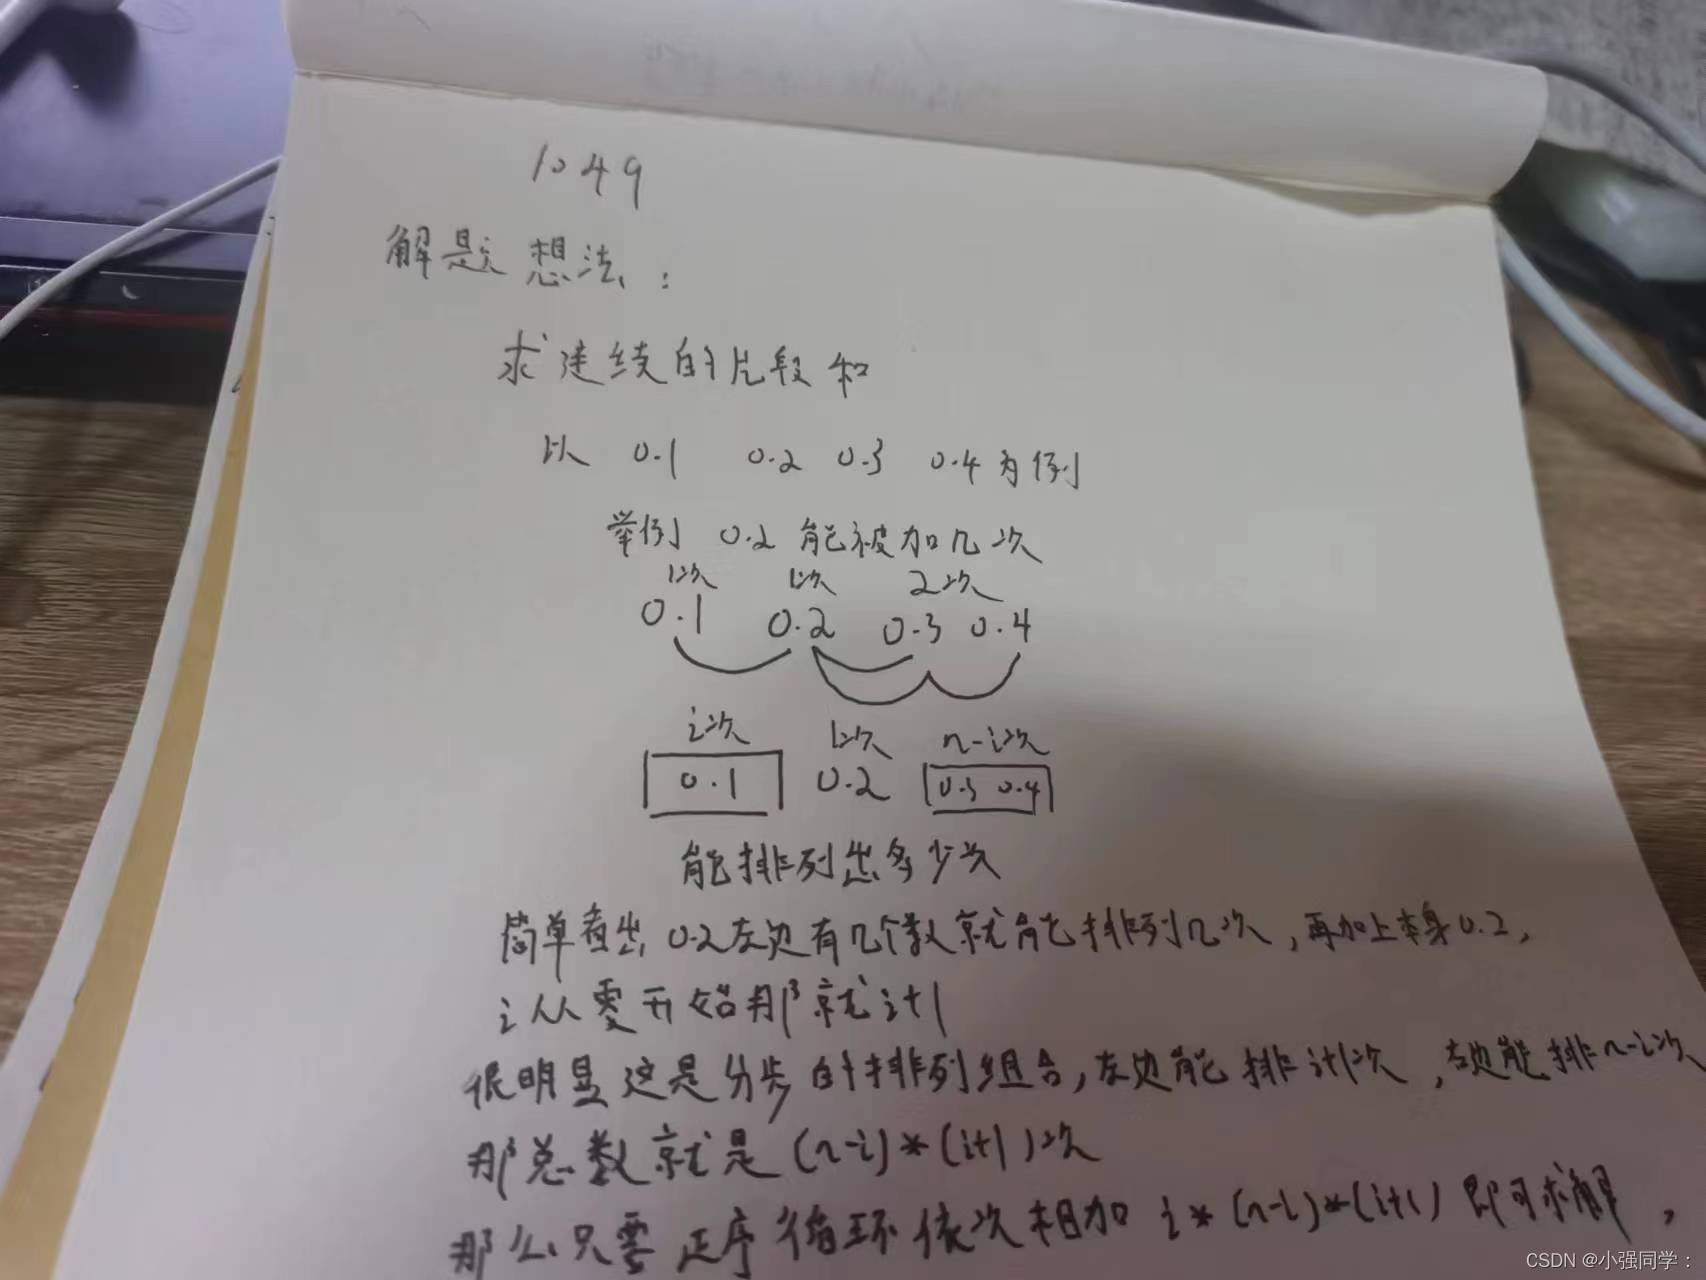 1049
解题想法:
求连续的片段和
以 0.1 0.2 0.3 0.4 为例
举例 0.2 能被加几次
1次 1次 2次
0.1 0.2 0.3 0.4
i次 1次 n-i次
0.1 0.2 0.3 0.4
能排列出多少次
简单看出 0.2左边有几个数就能排列几次,再加上本身0.2,
i从零开始那就i+1
很明显这是分步的排列组合,左边能排i+1次,右边能排n-i次
那总数就是(n-i)*(i+1)次
那么只要正序循环依次相加 i*(n-i)*(i+1) 即可求解,
CSDN @小强同学: